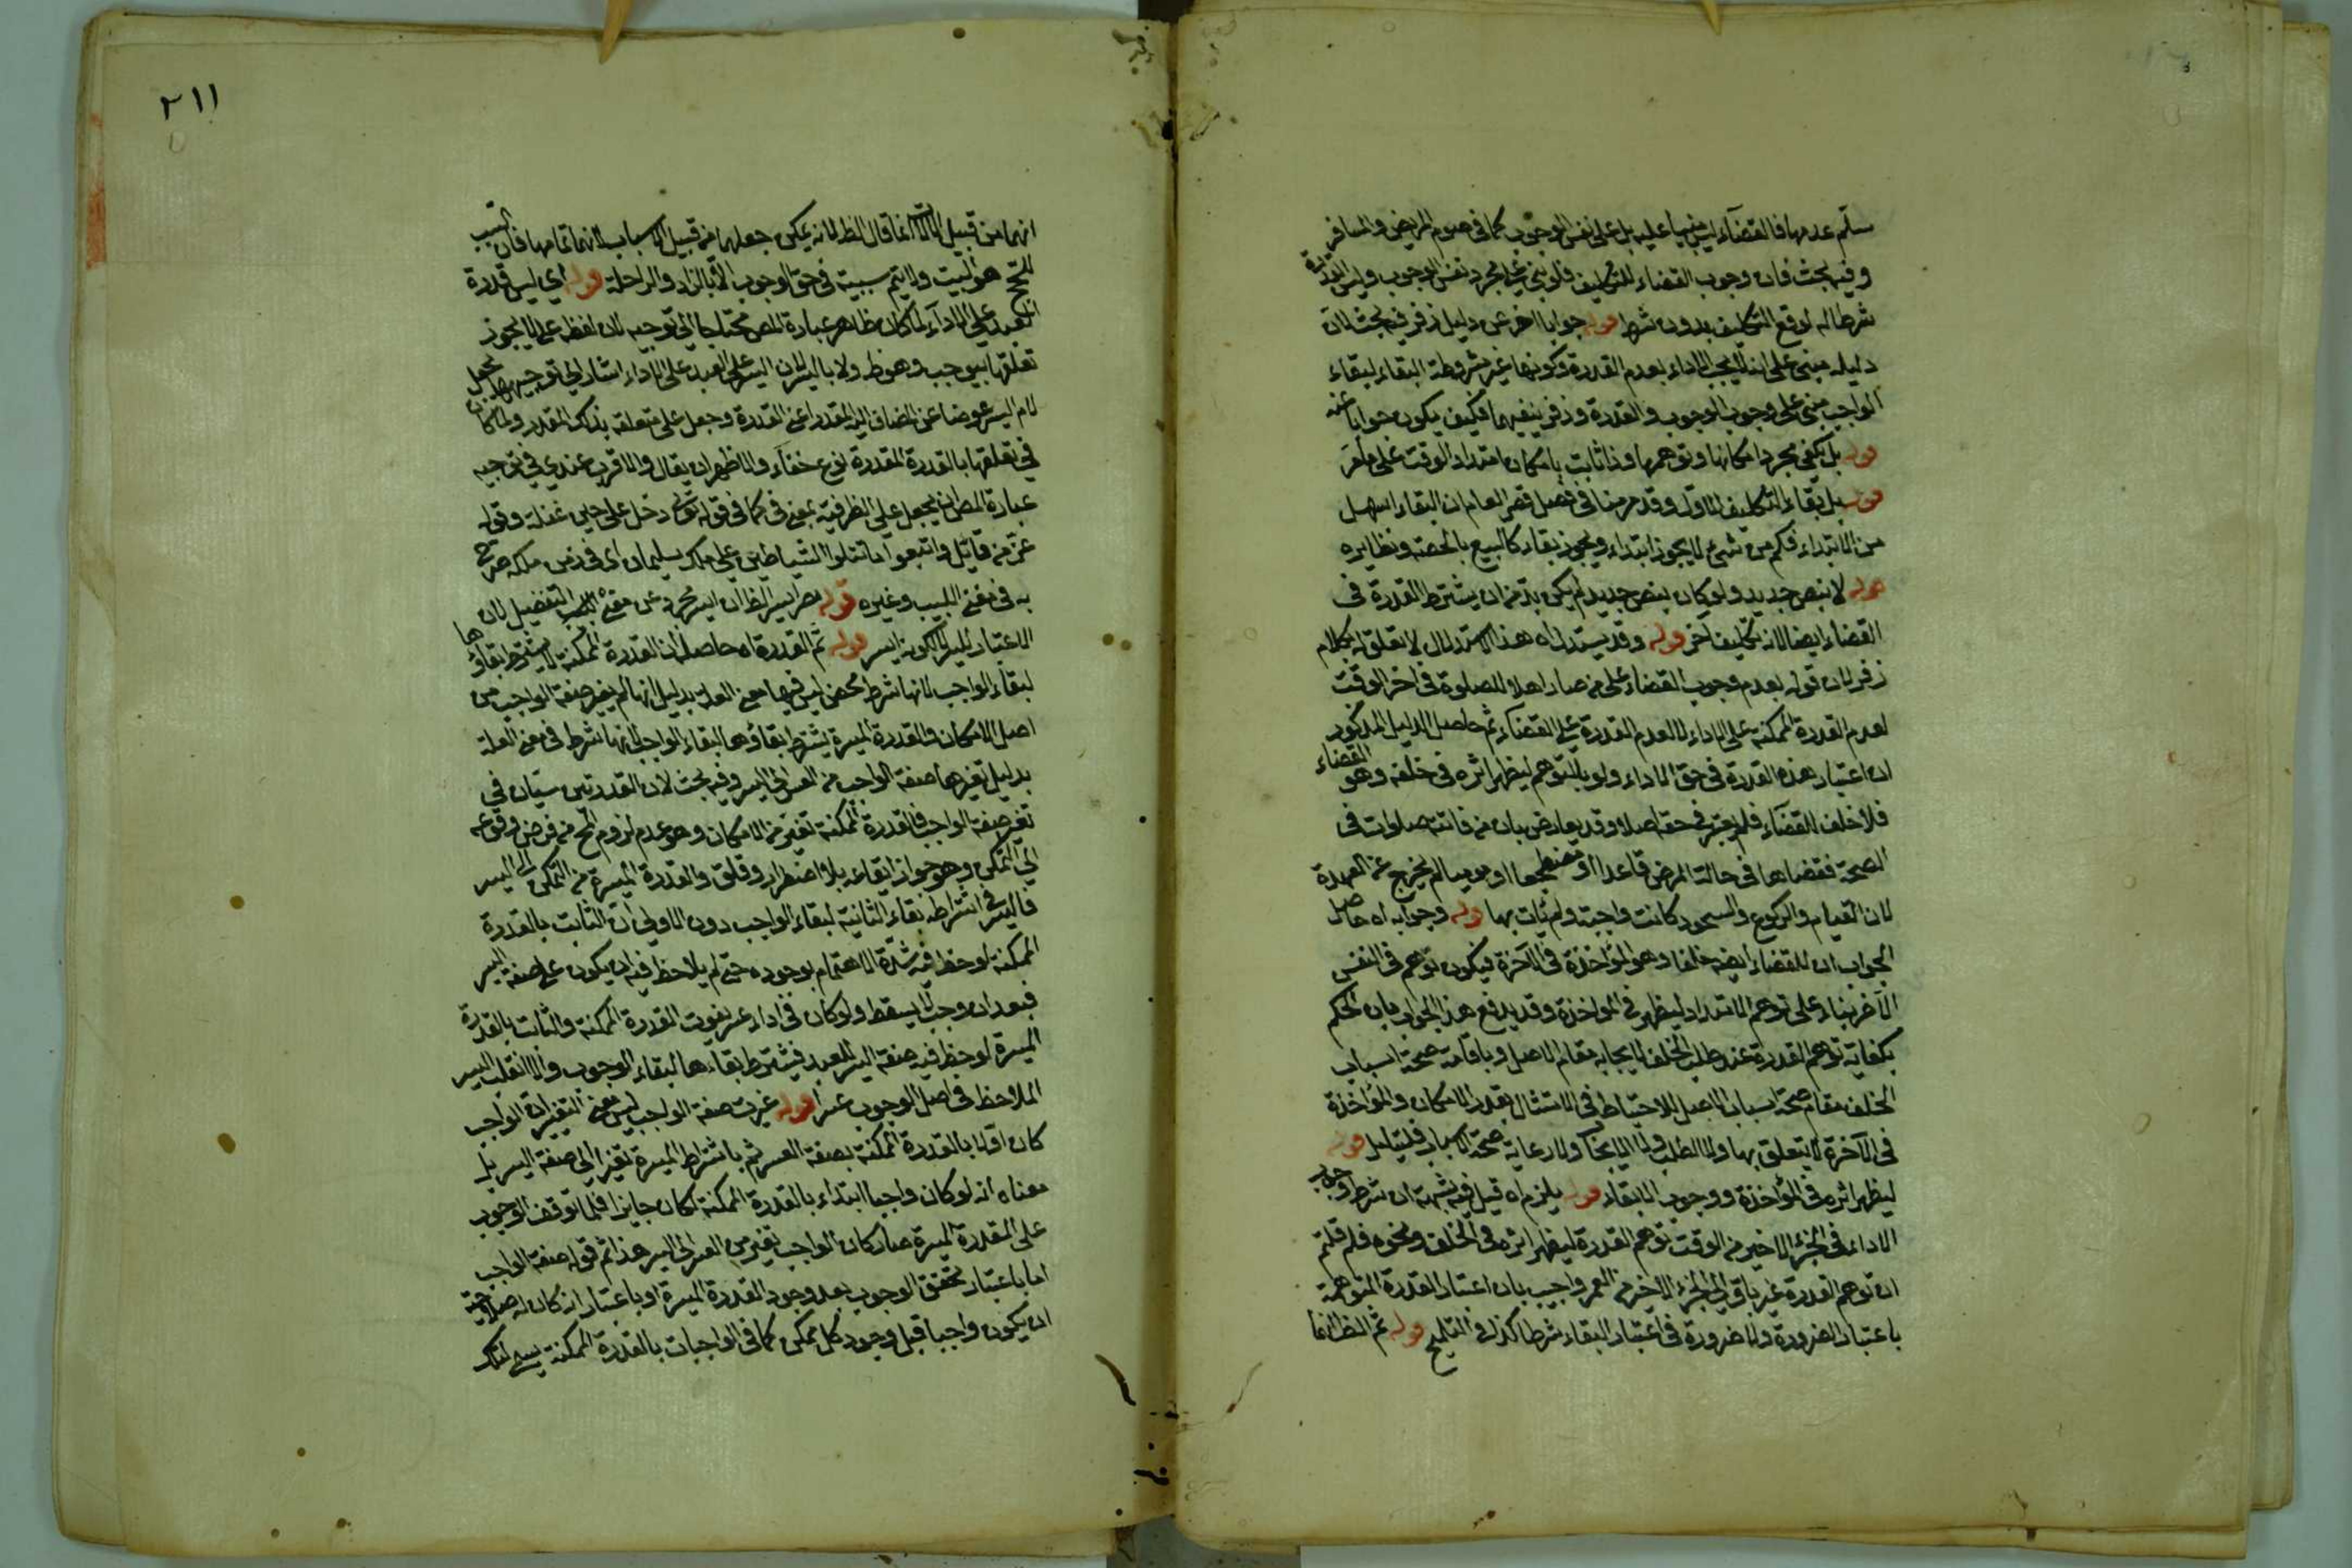 سلّم عدمها فالقضآء ليس مبنيا عليه بل على نفس الوجوب كما فى صوم المريض والمسافر
وفيه بحث فان وجوب القضاء للتكليف فلو بنى على مجرد نفس الوجوب وليس القدرة
شرطا له لوقع التكليف بدون شرط قوله جوابا اخر عن دليل زفر فيه بحث لان
دليله مبنى على انه لا يجب الاداء لعدم القدرة وكونها غير مشروطة البقاء لبقاء
الواجب مبنى على وجوب الوجوب والقدرة وزفر ينفيهما فكيف يكون جوابا عنه
قوله بل يكفى مجرد امكانها وتوهمها وذا ثابت بامكان امتداد الوقت على ما مر
قوله بل بقاء التكليف الاول وقد مر منا فى فصل قصر العام ان البقاء اسهل
من الابتداء فكم من شئ لا يجوز ابتداء ويجوز بقاء كالبيع بالحصة ونظايره
قوله لا بنص جديد ولو كان بنص جديد لم يكن بد من ان يشترط القدرة فى
القضاء ايضا لانه تكليف آخر قوله وقد يستدل اه هذا الاستدلال لا تعلق له بكلام
زفر لان قوله بعدم وجوب القضاء على من صار اهلا للصلوة فى اخر الوقت
لعدم القدرة الممكنة على الاداء لا لعدم القدرة على القضآء ثم حاصل الدليل المذكور
ان اعتبار هذه القدرة فى حق الاداء ولو بالتوهم ليظهر اثره فى خلفه وهو القضاء
فلا خلف للقضآء فلم يعتبر فى حقه اصلا وقد يعارض بان من فاتته صلوات فى
الصحة فقضاها فى حالة المرض قاعدا او مضطجعا او موميا لم يخرج عن العهدة
لان القيام والركوع والسجود كانت واجبة ولم يات بها قوله وجوابه اه حاصل
الجواب ان للقضاء ايضا خلفا وهو المؤاخذة فى الآخرة فيكون توهم فى النفس
الآخر بناء على توهم الامتداد ليظهر فى المواخذة وقد يدفع هذا الجواب بان الحكم
بكفاية توهم القدرة عند طلب الخلف لايجابه مقام الاصل وباقامة صحة اسباب
الخلف مقام صحة اسباب الاصل للاحتياط فى الامتثال بقدر الامكان والمؤاخذة
فى الآخرة لا يتعلق بها ولا الطلب ولا الايجاب ولا رعاية صحة الاسباب فليتامل قوله
ليظهر اثره فى المؤاخذة ووجوب الابقاء قوله يلزم اه قيل فيه شبهة ان شرط وجوب
الاداء فى الجزء الاخير من الوقت توهم القدرة ليظهر اثره فى الخلف ونحوه فلم قلتم
ان توهم القدرة غير باق الى الجزء الاخير من العمر واجيب بان اعتبار القدرة المتوهمة
باعتبار الضرورة ولا ضرورة فى اعتبار البقاء شرطا كذا فى التلويح قوله ثم الظ انما
٢١١
انهما من قبيل الآلات انما قال الظ لانه يمكن جعلهما من قبيل الاسباب لانهما تمامها فان السبب
للحج هو البيت ولا يتم سببيته فى حق الوجوب الا بالزاد والراحلة قوله اى ليس قدرة
العبد على الاداء لما كان ظاهر عبارة المص محتاجا الى توجيه لان لفظ على لا يجوز
تعلقها بيوجب وهو ظ ولا باليسر لان اليسر على العبد على الاداء اشار الى توجيهها بجعل
لام اليسر عوضا عن المضاف اليه المقدر اعنى القدرة وجعل على متعلقة بذلك المقدر ولما كان
فى تعلقها بالقدرة المقدرة نوع خفآء والاظهر ان يقال والاقرب عندى فى توجيه
عبارة المص ان يجعل على الظرفية بمعنى فى كما فى قوله تعالى دخل على حين غفلة وقوله
عز من قائل واتبعوا ما تتلوا الشياطين على ملك سليمان اى فى زمن ملكه صرح
به فى مغنى اللبيب وغيره قوله يصير ايسر الظ ان ايسر مجرد عن معنى التفضيل لان
الاعتبار لليسر لا لكونه ايسر قوله ثم القدرة اه حاصله ان القدرة الممكنة لا يشترط بقاؤها
لبقاء الواجب لانها شرط محض ليس فيها معنى العلة بدليل انها لم يغير صفة الواجب من
اصل الامكان والقدرة الميسرة يشترط بقاؤها لبقاء الواجب لانها شرط فى معنى العلة
بدليل تغيرها صفة الواجب من العسر الى اليسر وفيه بحث لان القدرتين سيّان فى
تغير صفة الواجب فالقدرة الممكنة تغير من الامكان وهو عدم لزوم المح من فرض وقوعه
الى التمكن وهو جواز ايقاعه بلا اضطرار وقلق والقدرة الميسرة من التمكن الى اليسر
فالسر فى اشتراط بقاء الثانية لبقاء الواجب دون الاولى ان الثابت بالقدرة
الممكنة لوحظ فيه شدّة الاهتمام بوجوده حتى لم يلاحظ فيه ان يكون على صفة اليسر
فبعد ان وجب لا يسقط ولو كان فى اداء عسر بفوت القدرة الممكنة والثابت بالقدرة
الميسرة لوحظ فيه صفة اليسر للعبد فيشترط بقاءها لبقاء الوجوب والا انقلب اليسر
الملاحظ فى اصل الوجوب عسرا قوله غيرت صفة الواجب ليس معنى التغير ان الواجب
كان اولا بالقدرة الممكنة بصفة العسر ثم باشتراط الميسرة تغير الى صفة اليسر بل
معناه انه لو كان واجبا ابتداء بالقدرة الممكنة لكان جايزا فلما توقف الوجوب
على القدرة الميسرة صار كان الواجب تغير من العسر الى اليسر هذا ثم قوله صفة الواجب
اما باعتبار تحقق الوجوب بعد وجود القدرة الميسرة او باعتبار انه كان له صلاحية
ان يكون واجبا قبل وجود كل ممكن كما فى الواجبات بالقدرة الممكنة